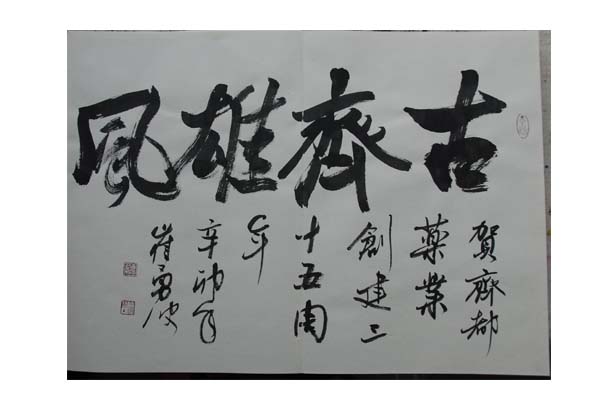 古齊雄風
賀齊都
藥業
創建三
十五周
年
辛卯
崔勇波